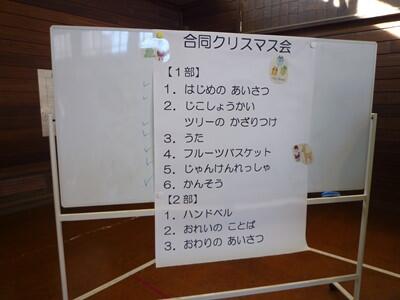 合同クリスマス会
【1部】
1. はじめの あいさつ
2. じこしょうかい
ツリーの かざりつけ
3. うた
4. フルーツバスケット
5. じゃんけんれっしゃ
6. かんそう
【2部】
1. ハンドベル
2. おれいの ことば
3. おわりの あいさつ